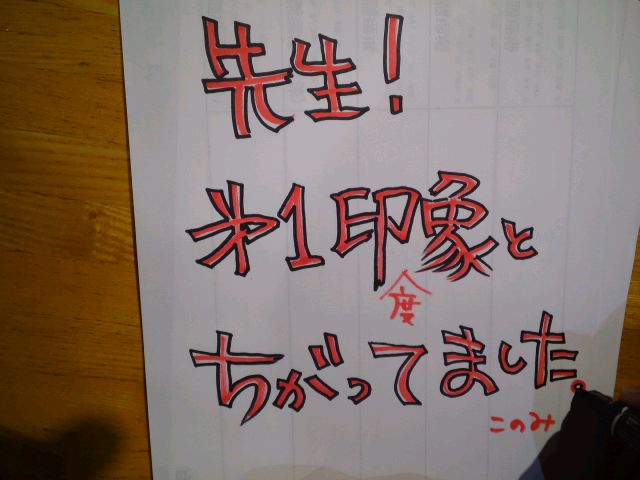 先生!
㐧1印象と
度
ちがってました。
このみ